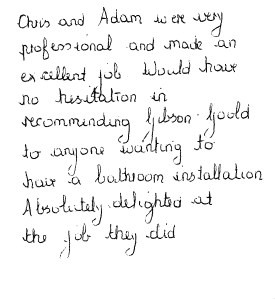 Chris and Adam were very
professional and made an
excellent job Would have
no hesitation in
recomminding Gibson Goold
to anyone wanting to
have a bathroom installation
Absolutely delighted at
the job they did